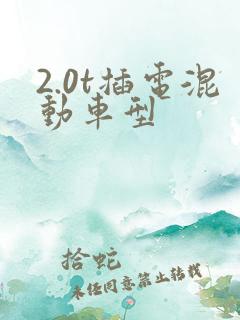 2.0t插電混
動車型
拾蛇
未经同意禁止转载